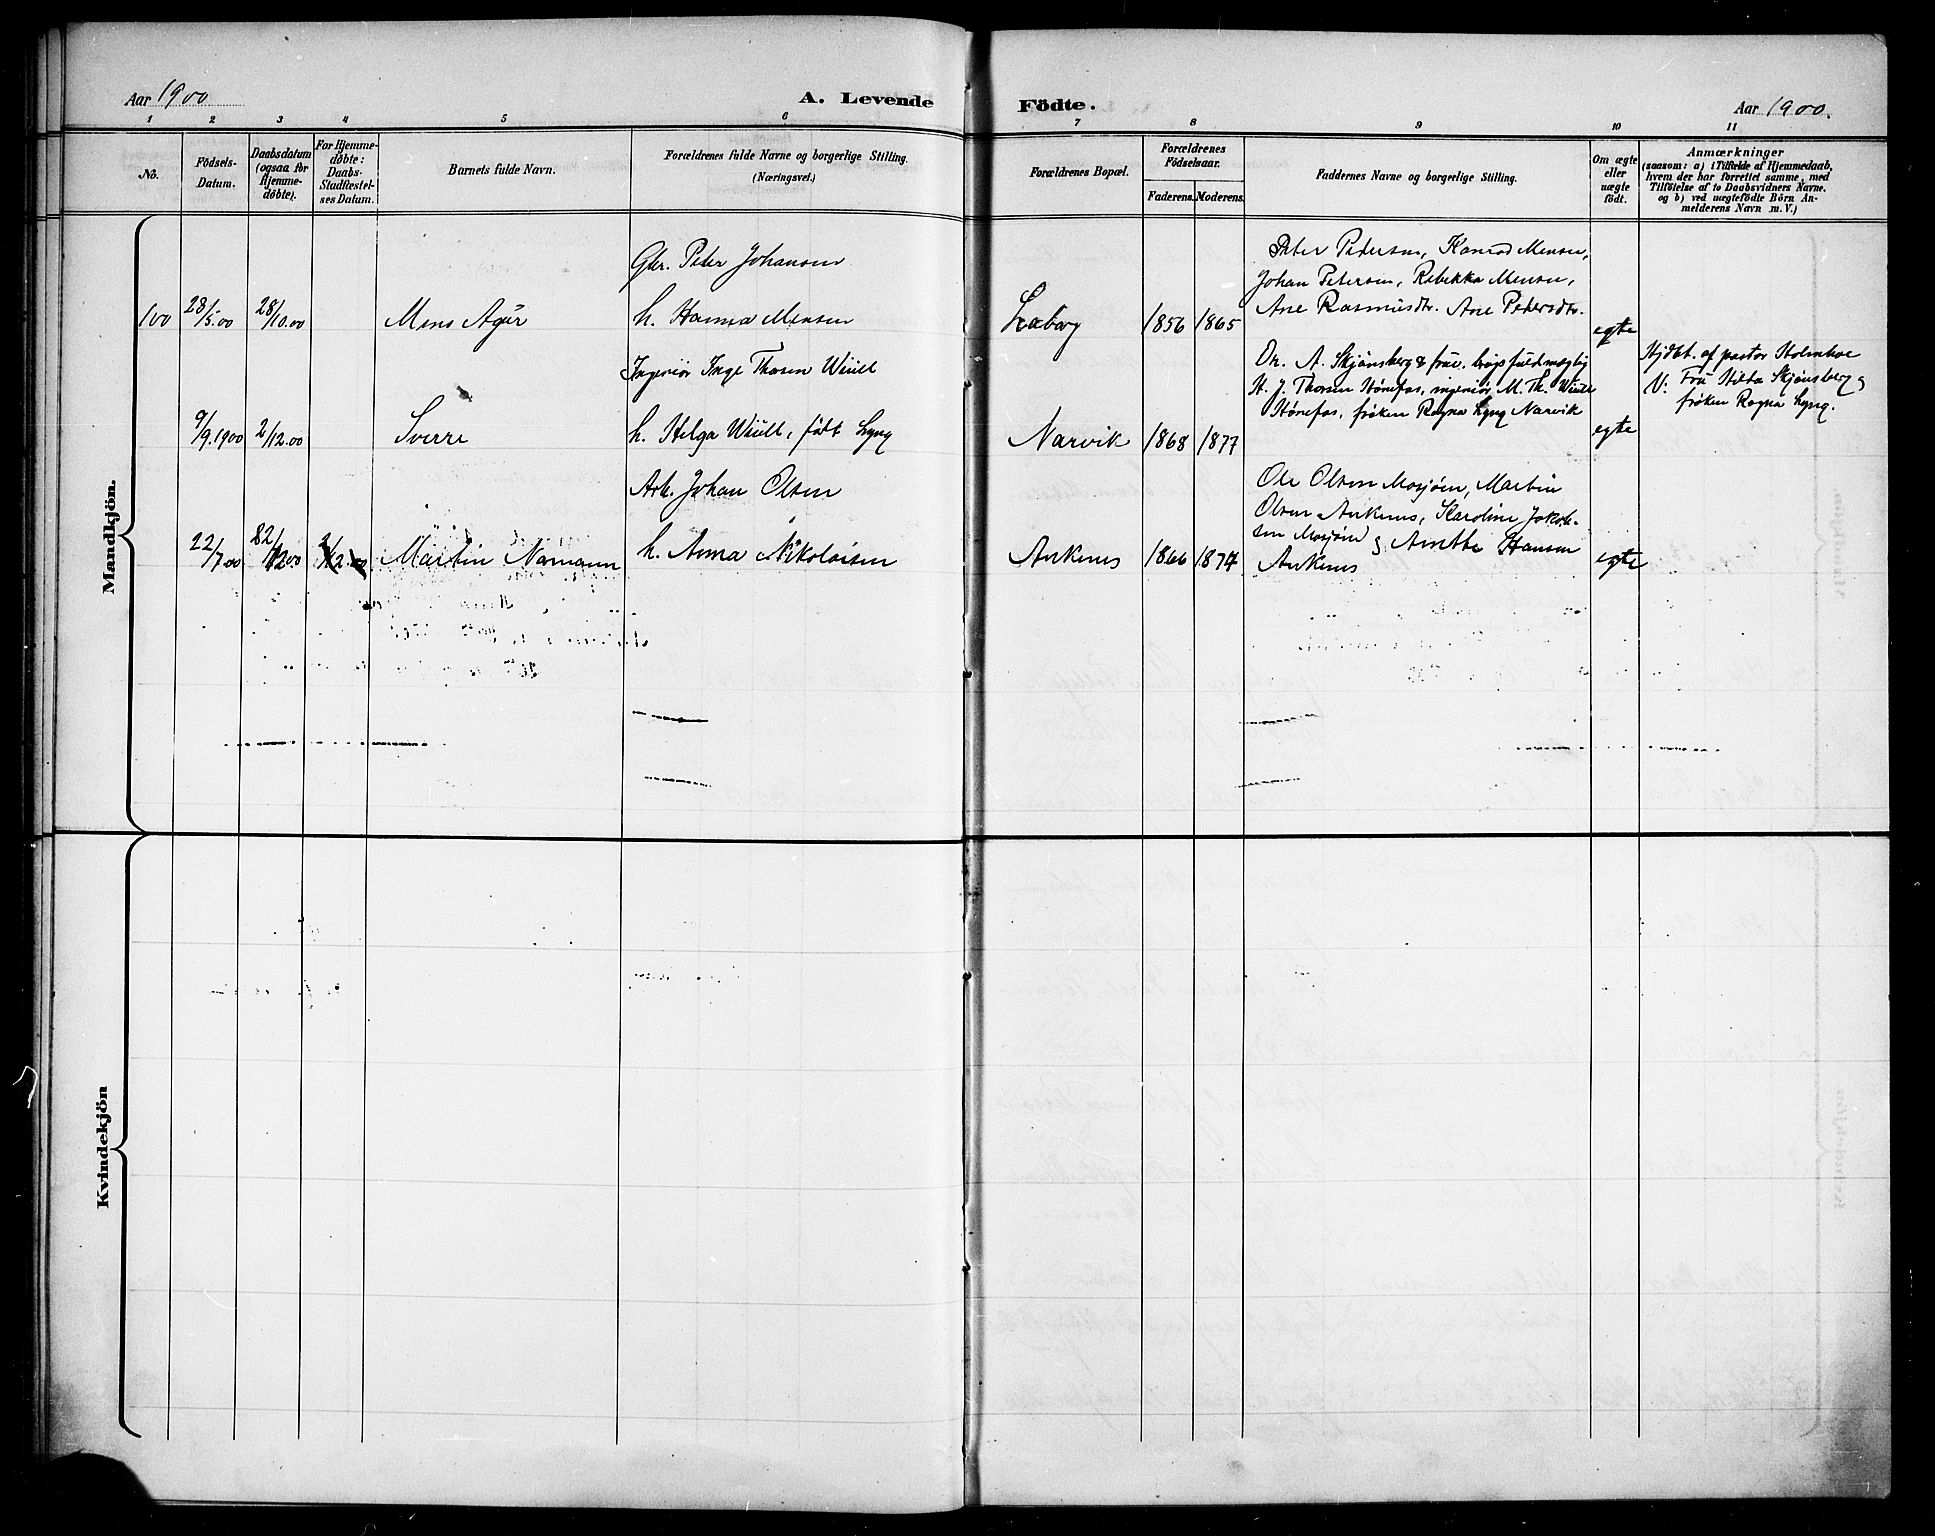 Aar 1900
A. Levende
Födte.
Aar 1900.
1 2 3 4 5 6 7 8 9 10 11
No.
Födsels-
Datum.
Daabsdatum
(ogsaa for
Hjemme-
døbte).
For Hjemme-
døbte:
Daabs-
Stadfæstel-
ses Datum.
Barnets fulde Navn.
Forældrenes fulde Navne og borgerlige Stilling.
(Næringsvei.)
Forældrenes Bopæl.
Forældrenes
Födselsaar.
Faderens. Moderens.
Faddernes Navne og borgerlige Stilling.
Om ægte
eller
uægte
födt.
Anmærkninger
(saasom: a) i Tilfælde af Hjemmedaab,
hvem der har forrettet samme, med
Tilföielse af to Daabsvidners Navne.
og b) ved uægtefödte Börn An-
melderens Navn m. V.)
Mandkjön.
100 28/5.00 28/10.00 Mens Agur
Gbr. Peter Johansen
h. Hanna Mensen
1856 1865
Peter Pedersen, Konrad Mensen,
Johan Petersen, Rebekka Mensen,
Ane Rasmusdtr. Ane Petersdtr.
egte
9/9.1900 2/12.00 Sverre
Ingeniør Inge Thorsen Wiull
h. Helga Wiull, født Lyng
Narvik 1868 1877
Dr. A. Skjønsberg & frue,
H. J. Thorsen Hønefos, ingeniør M. Th. Wiull
Hønefos, frøken Ragna Lyng Narvik
egte
Hjdbt. af pastor Holmboe
V: Fru Hilda Skjønsberg &
frøken Ragna Lyng.
22/7.00 Martin Normann
Arb. Johan Olsen
h. Anna Nikolaisen
Ankenes 1866 1874
Ole Olsen Mosjøen, Martin
Olsen Ankenes, Karoline Jakob-
sen Mosjøen & Anette Hansen
Ankenes
egte
Kvindekjön